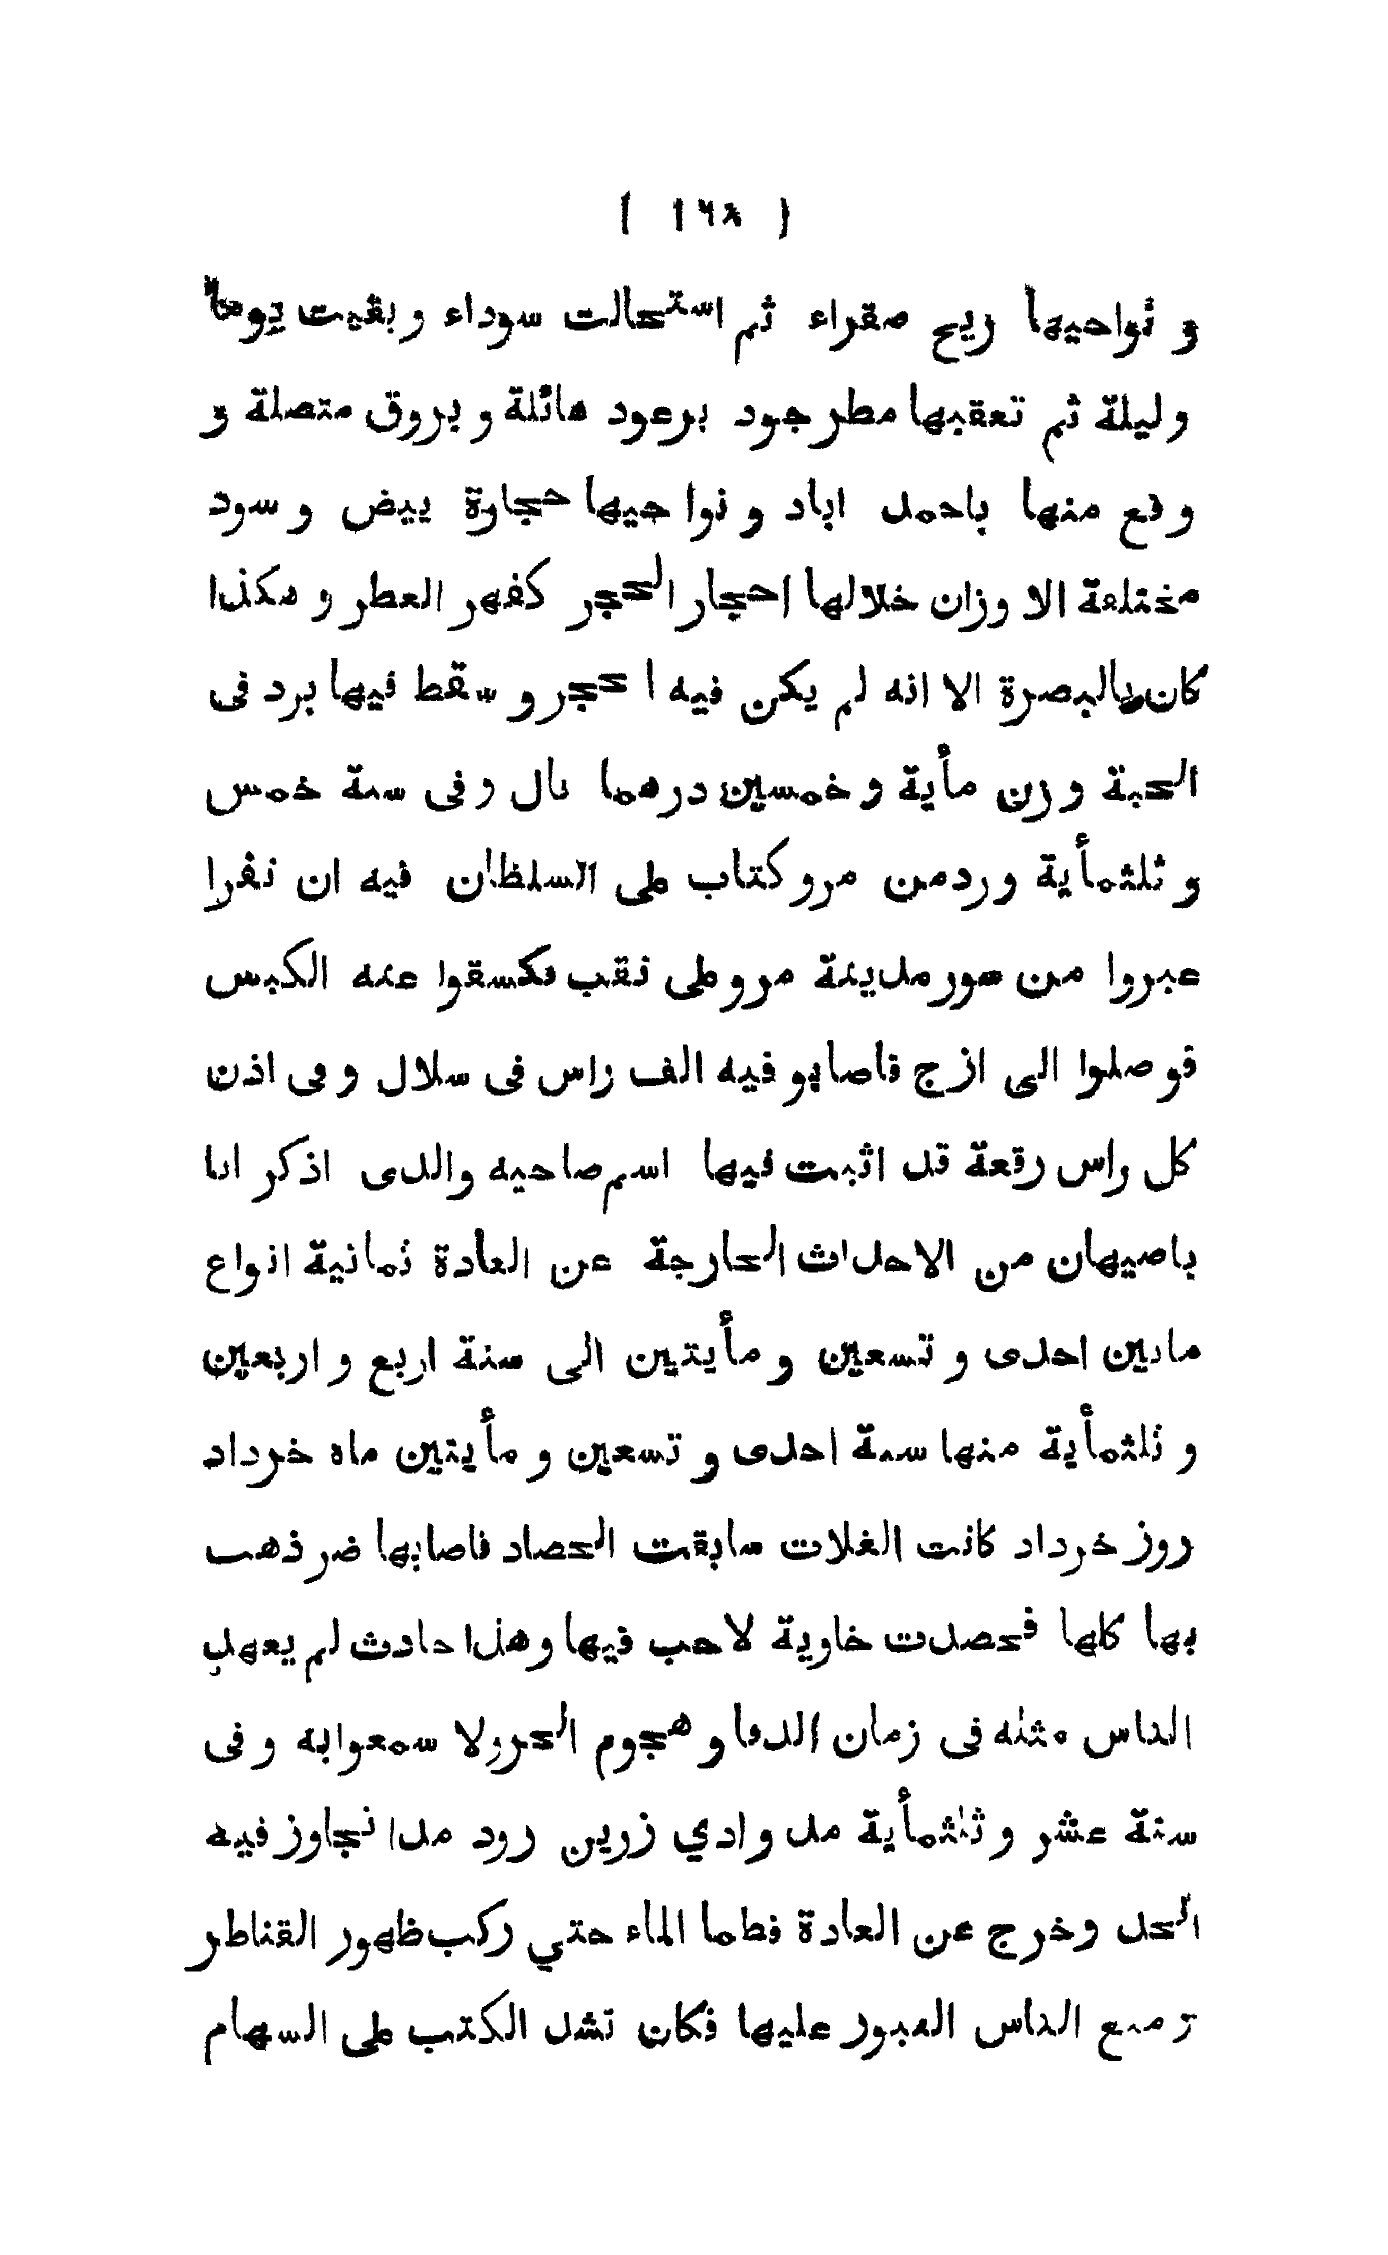 ( ١٦٨ )
و نواحيها ريح صقراء ثم استحالت سوداء و بقيت يوما
و ليلة ثم تعقبها مطر جود برعود هائلة و بروق متصلة و
وقع منها باحمد اباد و نوا حيها حجارة بيض و سود
مختلعة الا وزان خلالها احجار الحجر كفهر العطر و هكذا
كان بالبصرة الا انه لم يكن فيه ا حجر و سقط فيها برد فى
الحبة و زن مأية و خمسين درهما نال و فى سنة خمس
و ثلثمأية وردمن مرو كتاب على السلطان فيه ان نفرا
عبروا من سور مدينة مرو على نقب فكسقوا عنه الكبس
فوصلوا الى ازج فاصابو فيه الف راس فى سلال و فى اذن
كل راس رقعة قد اثبت فيها اسم صاحيه والدى اذكر انا
باصيهان من الاحداث الحارجة عن العادة ثمانية انواع
مابين احدى و تسعين و مأيتين الى سنة اربع و اربعين
و ثلثمأية منها سنة احدى و تسعين و مأيتين ماه خرداد
روز خرداد كانت الغلات سابقت الحصاد فاصابها ضر ذهب
بها كلها فحصدت خاوية لا حب فيها و هذا حادث لم يعهد
الناس مثله فى زمان الدفا و هجوم الحرولا سمعوا به و فى
سنة عشر و ثلثمأية مد وادي زرين رود مدا نجاوز فيه
الحد و خرج عن العادة فطما الماء حتي ركب ظهور القناطر
و منع الناس العبور عليها فكان تشد الكتب على السهام